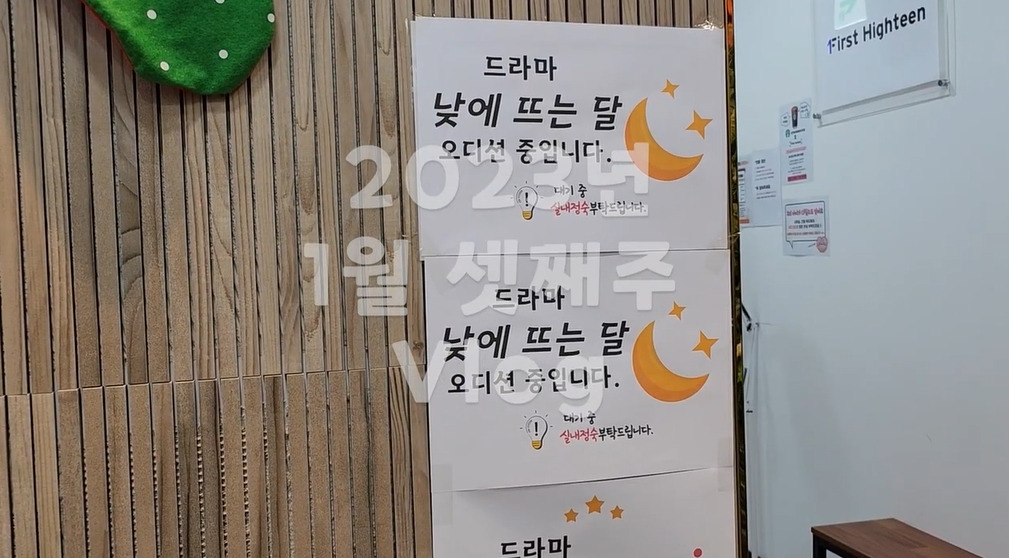 드라마
낮에 뜨는 달
오디션 중입니다.
대기 중
실내정숙부탁드립니다.
2023년
1월 셋째주
Vlog
드라마
낮에 뜨는 달
오디션 중입니다.
대기 중
실내정숙부탁드립니다.
드라마
First Highteen